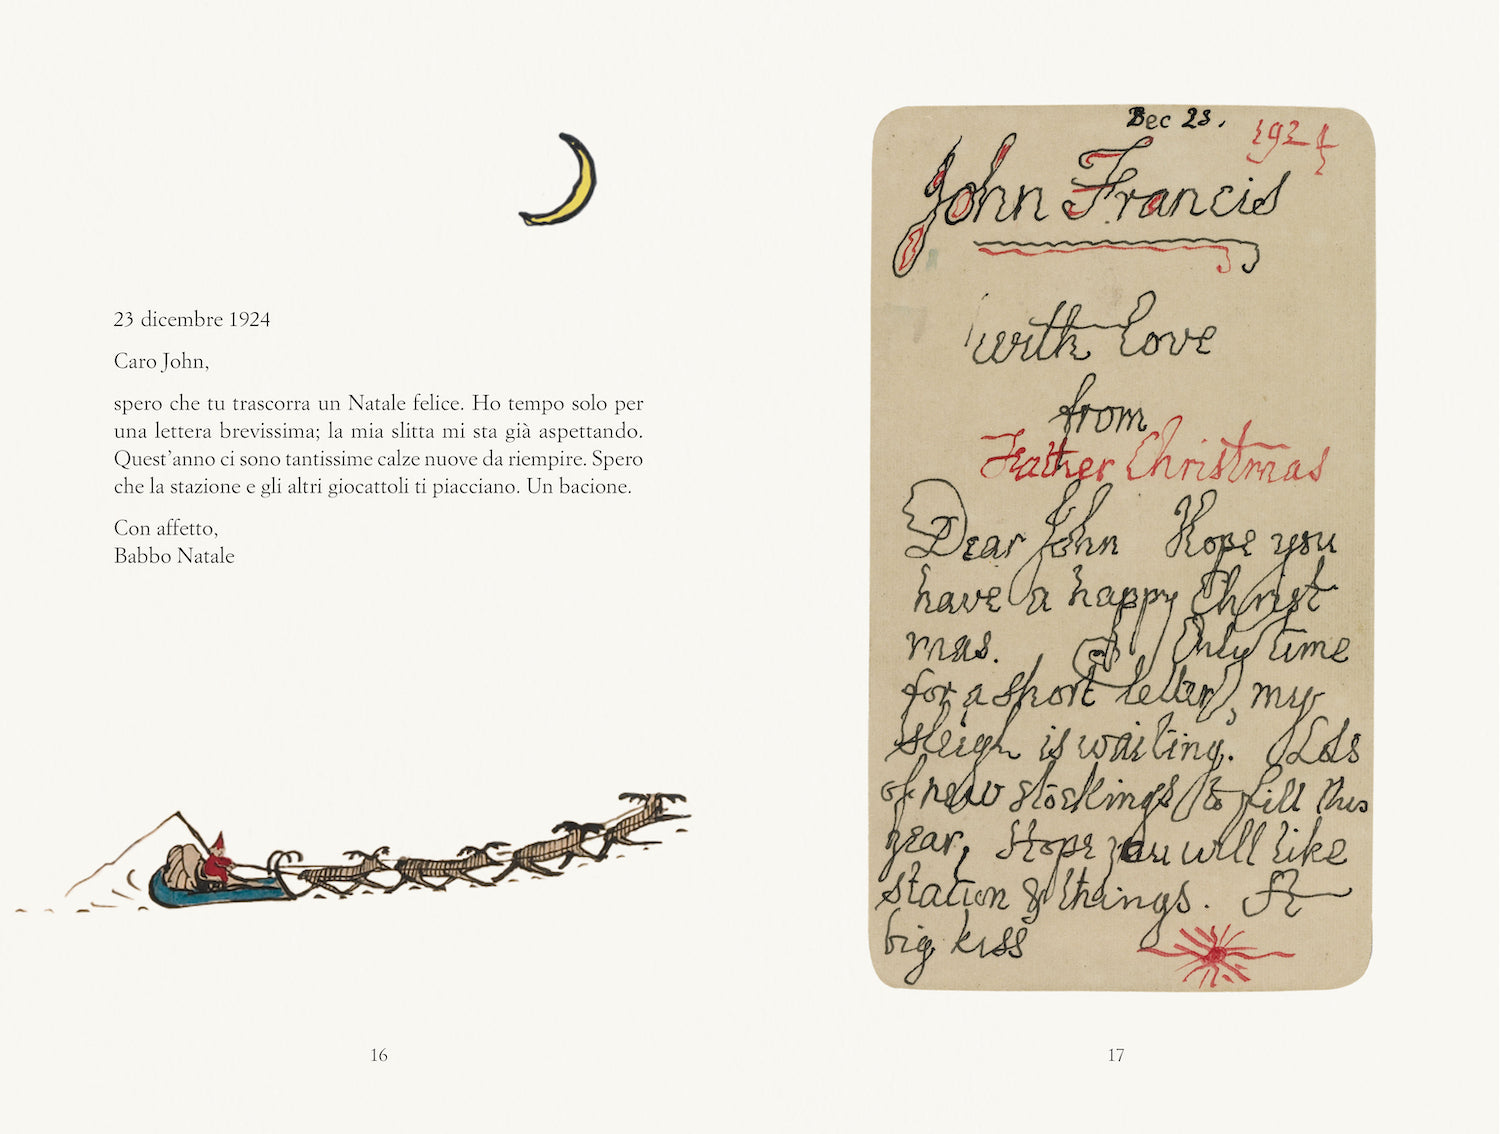 23 dicembre 1924
Caro John,
spero che tu trascorra un Natale felice. Ho tempo solo per
una lettera brevissima; la mia slitta mi sta già aspettando.
Quest'anno ci sono tantissime calze nuove da riempire. Spero
che la stazione e gli altri giocattoli ti piacciano. Un bacione.
Con affetto,
Babbo Natale
16
Dec 23. 1924
John Francis
with love
from
Father Christmas
Dear John Hope you
have a happy Christ
mas. Only time
for a short letter, my
sleigh is waiting. Lots
of new stockings to fill this
year, Hope you will like
station & things. A
big kiss
17